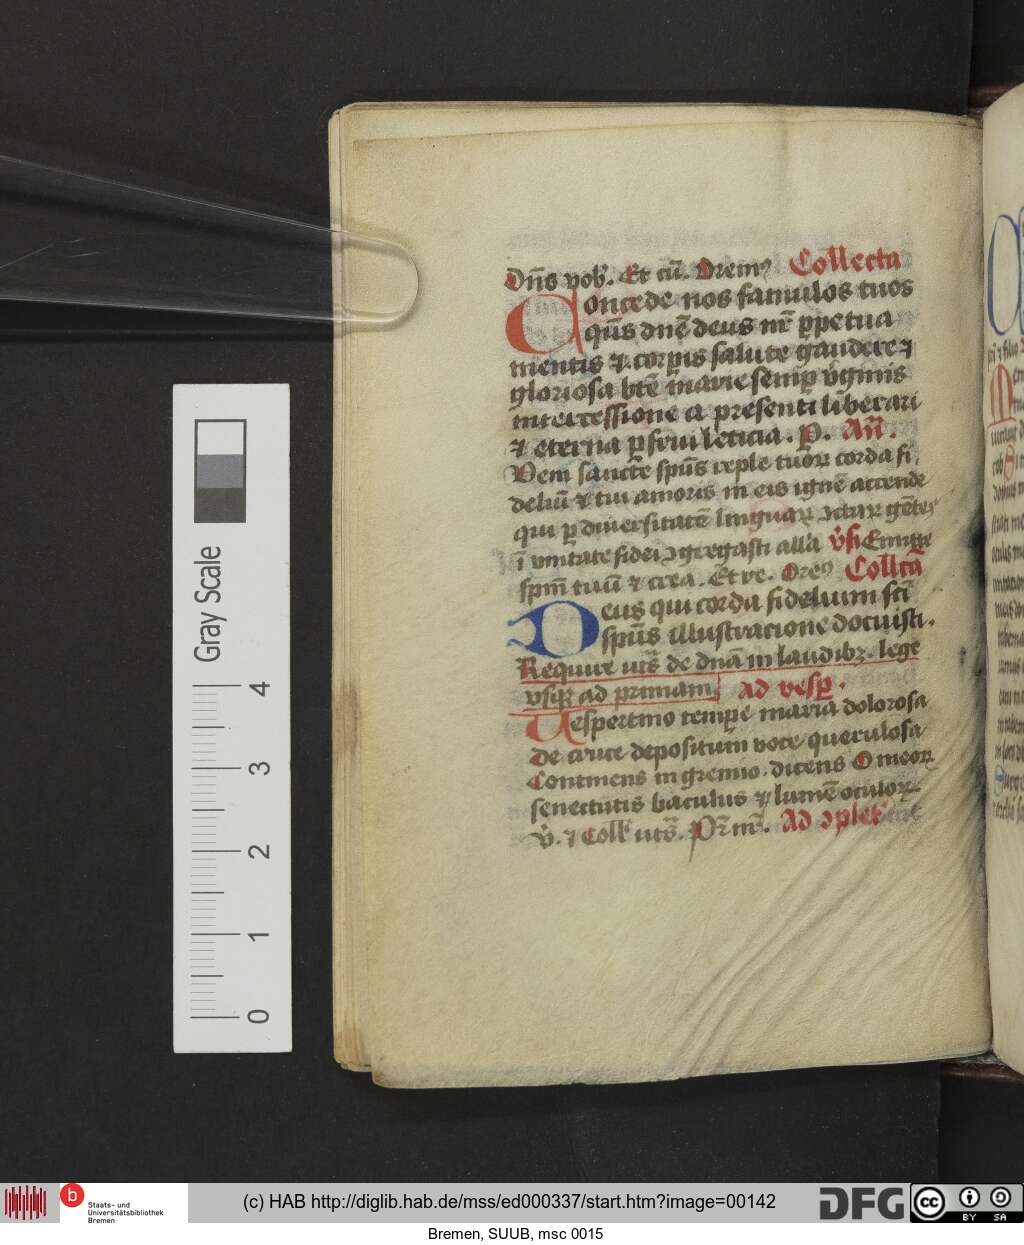 Dn̄s vob'. Et cū. Orem⁹ Collecta
Concede nos famulos tuos
qs̄ dn̄e deus nr̄ ꝑpetua
mentis ⁊ corꝑis salute gaudere ⁊
gloriosa bt̄e marie semꝑ v̓ginis
intercessione a presenti liberari
⁊ eterna ꝑfrui leticia. P. An̄.
Veni sancte spūs reple tuoꝝ corda fi
deliū ⁊ tui amoris in eis ignē accende
qui ꝑ diuersitatē linguaꝝ cūctaꝝ gētes
ī vnitate fidei ꝯgregasti alla v̓si Emitte
spm̄ tuū ⁊ crea. Et re. Orem⁹ Collcā
Deus qui corda fidelium sci̅
spūs illustracione docuisti.
Require uts̄ de dn̄a in laudibꝫ. lege
vsqꝫ ad primam. ad vesꝑ.
Uespertino tempe maria dolorosa
de cruce depositum voce querulosa
Continens in gremio. dicens O meoꝝ
senectutis baculus ⁊ lumē oculoꝝ.
v̓. ⁊ Coll' uts̄. Pr̄ nr̄. Ad ꝯplet'
Gray Scale
4
3
2
1
0
b
Staats- und
Universitätsbibliothek
Bremen
(c) HAB http://diglib.hab.de/mss/ed000337/start.htm?image=00142
DFG
cc
BY SA
Bremen, SUUB, msc 0015